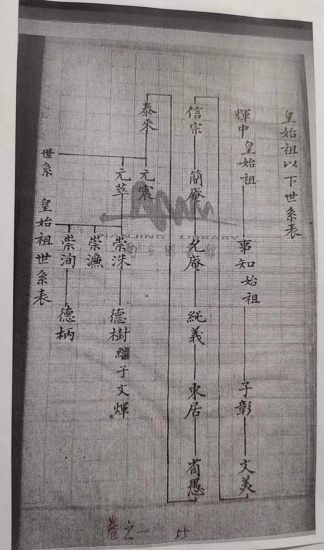 皇始祖以下世系表
輝中皇始祖 事知始祖 子彰 文美
信宗 簡庵 允庵 純義 東居 省愚
泰來 元震
元萃 崇洙 德樹 繼子文煇
崇漁
崇洵 德柄
世系 皇始祖世系表
卷之一 55